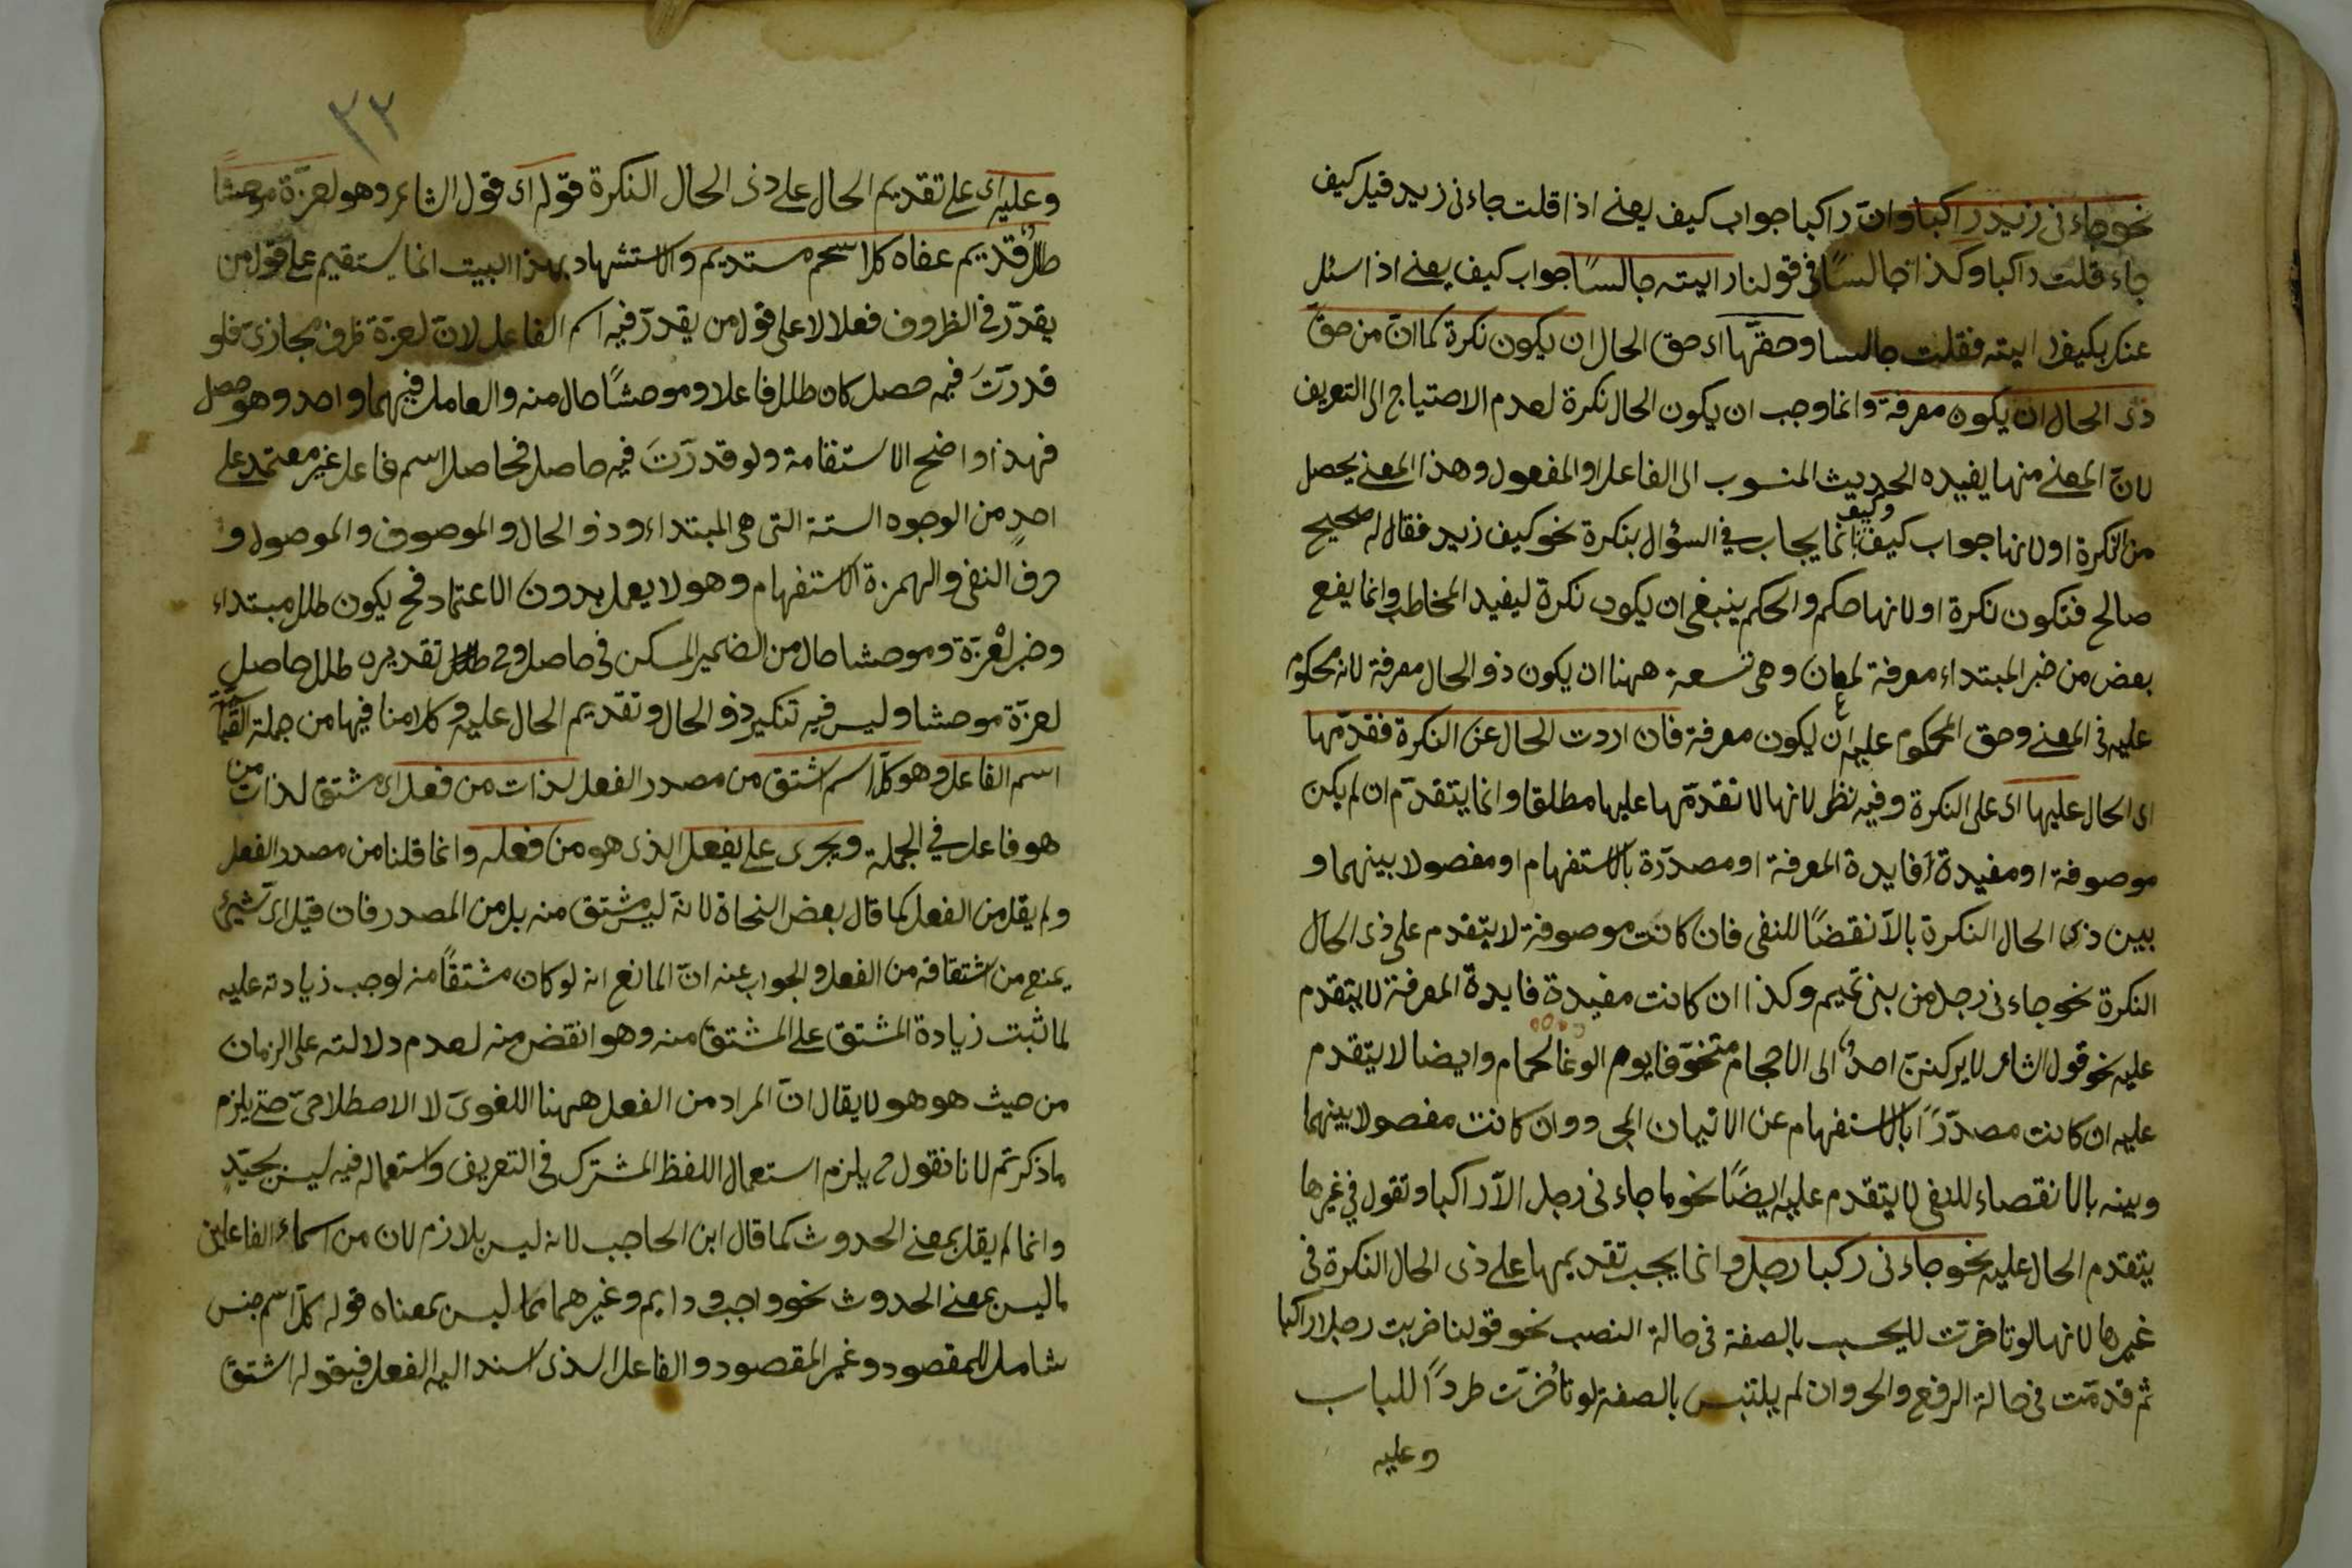 نحو جاءنى زيد راكبا وانّ راكبا جواب كيف يعنى اذا قلت جاءنى زيد فيل كيف
جاء قلت راكبا وكذا جالسًا فى قولنا رايته جالسًا جواب كيف يعنى اذا سئل
عنك بكيف رايته فقلت جالسا وحقّها اى حق الحال ان يكون نكرة كما انّ من حقّ
ذى الحال ان يكون معرفة وانما وجب ان يكون الحال نكرة لعدم الاحتياج الى التعريف
لانّ المعنى منها يفيده الحديث المنسوب الى الفاعل او المفعول وهذا المعنى يحصل
من النكرة او لانها جواب كيف وكيف انما يجاب فى السؤال بنكرة نحو كيف زيد فقال له صحيح
صالح فتكون نكرة او لانها حكم والحكم ينبغى ان يكون نكرة ليفيد المخاطب وانما يقع
بعض من خبر المبتداء معرفة لمعان وهى تسعة ههنا ان يكون ذو الحال معرفة لانه محكوم
عليه فى المعنى وحق المحكوم عليه ان يكون معرفة فان اردت الحال عن النكرة فقدّمها
اى الحال عليها اى على النكرة وفيه نظر لانها لا تقدّمها عليها مطلقا وانما يتقدّم ان لم يكن
موصوفة او مفيدة فايدة المعرفة او مصدّرة بالاستفهام او مفصولا بينهما و
بين ذى الحال النكرة بالّا نقضًا للنفى فان كانت موصوفة لا يتقدم على ذى الحال
النكرة نحو جاءنى رجل من بنى تميم وكذا ان كانت مفيدة فايدة المعرفة لا يتقدم
عليه نحو قول الشاعر لا يركننّ احدٌ الى الاحجام متخوّفا يوم الوغا لحمام وايضا لا يتقدم
عليه ان كانت مصدّرًا بالاستفهام عن الاتيان المجى ووان كانت مفصولا بينهما
وبينه بالا نقصاء للنفى لا يتقدم عليه ايضًا نحو ما جاءنى رجل الّا راكبا وتقول فى غيرها
يتقدم الحال عليه نحو جاءنى ركبا رجل وانما يجب تقديمها على ذى الحال النكرة فى
غيرها لانها لو تاخرت للبحسب بالصفة فى حالة النصب نحو قولنا ضربت رجلا راكبا
ثم قدمّت فى حالة الرفع والجر وان لم يلتبس بالصفة لو تاخّرت طردًا للباب
وعليه
٣٢
وعليه اى على تقديم الحال على ذى الحال النكرة قوله اى قول الشاعر وهو لعزّة موحشًا
طللٌ قديم عفاه كل اسحم مستديم والاستشهاد بهذا البيت انما يستقيم على قول من
يقدّر فى الظروف فعلا لا على قول من يقدّر فيه اسم الفاعل لانّ لعزة ظرف مجازىّ فلو
قدرّت فيه حصل كان طلل فاعلا وموحشًا حال منه والعامل فيهما واحد وهو حصل
فهذا واضح الاستقامة ولو قدرّت فيه حاصل فحاصل اسم فاعل غير معتمد على
احدٍ من الوجوه الستة التى هى المبتداء وذو الحال والموصوف والموصول و
حرف النفى والهمزة الاستفهام وهو لا يعمل بدون الاعتماد فح يكون طلل مبتداء
وخبر لعزّة وموحشا حال من الضمير المسكن فى حاصل وفى تقديره طلل حاصل
لعزّة موحشا وليس فيه تنكير ذو الحال وتقديم الحال عليه وكلامنا فيها من جملة
اسم الفاعل وهو كل اسم اشتق من مصدر الفعل لذات من فعل اى مشتق لذات من
هو فاعل فى الجملة ويجرى على يفعل الذى هو من فعله وانما قلنا من مصدر الفعل
ولم يقل من الفعل كما قال بعض النحاة لانه ليس مشتق منه بل من المصدر فان قيل اىّ شيئ
يمنع من اشتقاقه من الفعل والجواب عنه انّ المانع انه لو كان مشتقًا منه لوجب زيادته عليه
لما ثبت زيادة المشتق على المشتق منه وهو انقض منه لعدم دلالته على الزمان
من حيث هو هو لا يقال انّ المراد من الفعل ههنا اللغوىّ لا الاصطلاحىّ حتى يلزم
ما ذكرتم لانا نقول ح يلزم استعمال اللفظ المشترك فى التعريف واستعماله فيه ليس بجيّدٍ
وانما لم يقل بمعنى الحدوث كما قال ابن الحاجب لانه ليس بلازم لان من اسماء الفاعلين
ما ليس بمعنى الحدوث نحو واجب ودايم وغيرهما مما ليس بمعناه قوله كل اسم جنس
شامل للمقصود وغير المقصود والفاعل الذى اسند اليه الفعل فبقوله اشتق